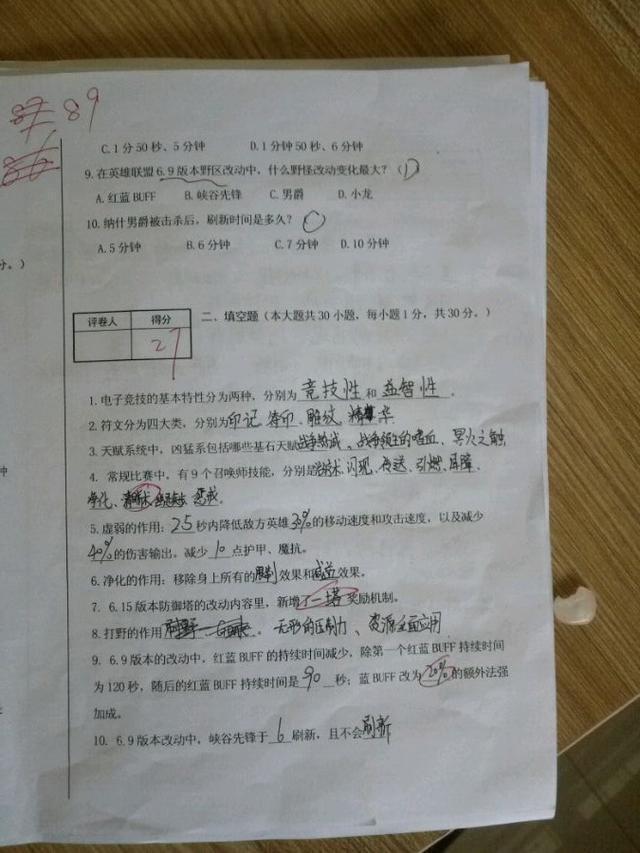 89
C. 1 分 50 秒、5 分钟 D. 1 分钟 50 秒、6 分钟
9. 在英雄联盟 6.9 版本野区改动中，什么野怪改动变化最大？（D）
A. 红蓝 BUFF B. 峡谷先锋 C. 男爵 D. 小龙
10. 纳什男爵被击杀后，刷新时间是多久？（C）
A. 5 分钟 B. 6 分钟 C. 7 分钟 D. 10 分钟
分。）
评卷人 得分
27
二、填空题（本大题共 30 小题，每小题 1 分，共 30 分。）
1. 电子竞技的基本特性分为两种，分别为 竞技性 和 益智性 。
2. 符文分为四大类，分别为 印记、符印、雕纹、精华
3. 天赋系统中，凶猛系包括哪些基石天赋 战争热诚、战争领主的嗜血、冥火之触
4. 常规比赛中，有 9 个召唤师技能，分别是 治疗术、闪现、传送、引燃、屏障、
钟
净化、清晰术 惩戒。
5. 虚弱的作用：2.5 秒内降低敌方英雄 30% 的移动速度和攻击速度，以及减少
40% 的伤害输出。减少 10 点护甲、魔抗。
6. 净化的作用：移除身上所有的 限制 效果和 减益 效果。
7. 6.15 版本防御塔的改动内容里，新增了 一塔 奖励机制。
8. 打野的作用 。无形的压制力、资源全面应用
9. 6.9 版本的改动中，红蓝 BUFF 的持续时间减少，除第一个红蓝 BUFF 持续时间
为 120 秒，随后的红蓝 BUFF 持续时间是 90 秒；蓝 BUFF 改为 20% 的额外法强
加成。
10. 6.9 版本改动中，峡谷先锋于 6 刷新，且不会 刷新